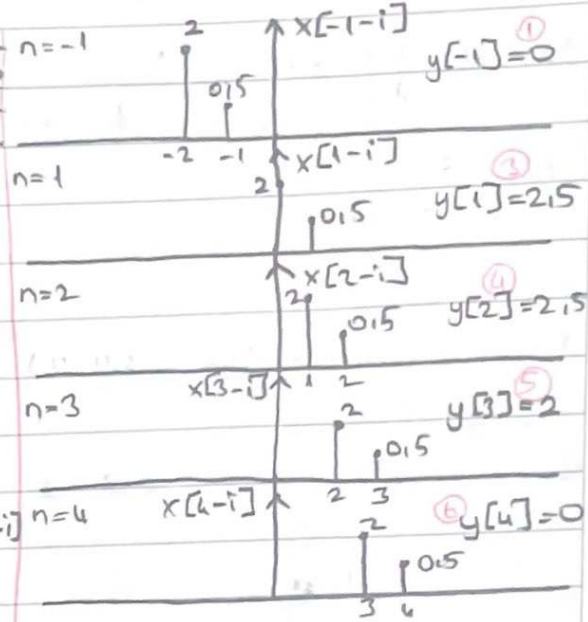 n=-1 2 x[-1-i] ①
0,5 y[-1]=0
-2 -1
n=1 x[1-i] ③
2 0,5 y[1]=2,5
n=2 x[2-i] ④
2 0,5 y[2]=2,5
1 2
n=3 x[3-i] ⑤
2 0,5 y[3]=2
2 3
i] n=4 x[4-i] ⑥ y[4]=0
2 0.5
3 4